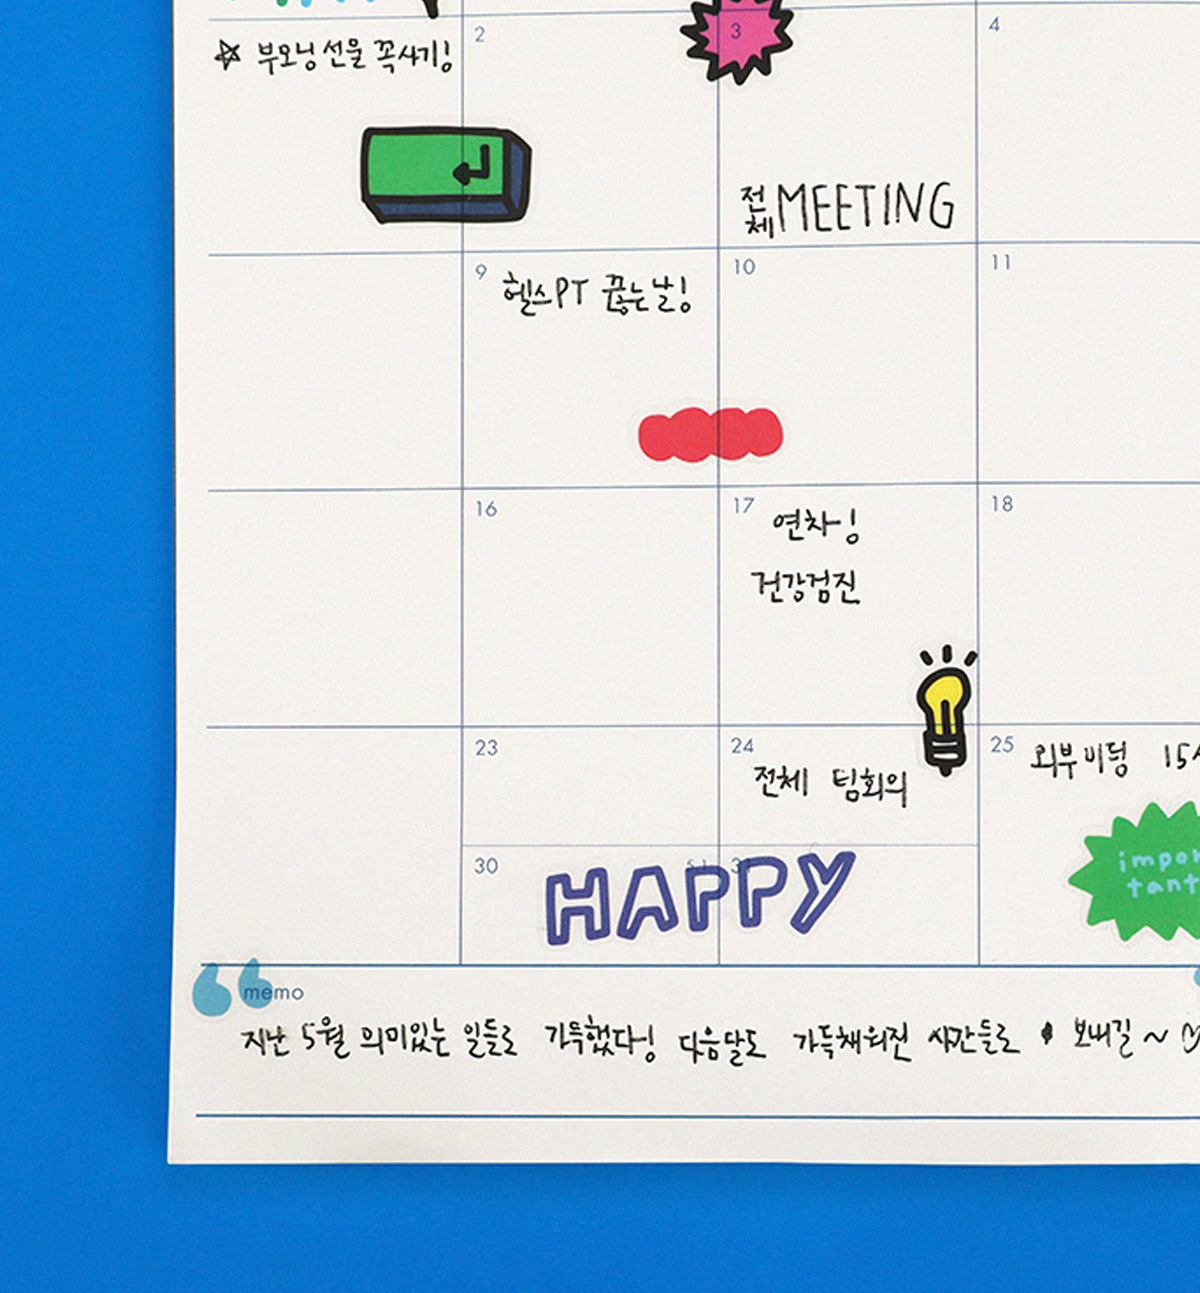 2
3
4
☆ 부모님 선물 꼭 사기!
전체 MEETING
9
헬스PT 끊는 날!
10
11
16
17
연차!
건강검진
18
23
24
전체 팀회의
25
외부미팅 15
30
31
HAPPY
impor
tant
memo
지난 5월 의미있는 일들로 가득했다! 다음달도 가득채워진 시간들로 보내길 ~